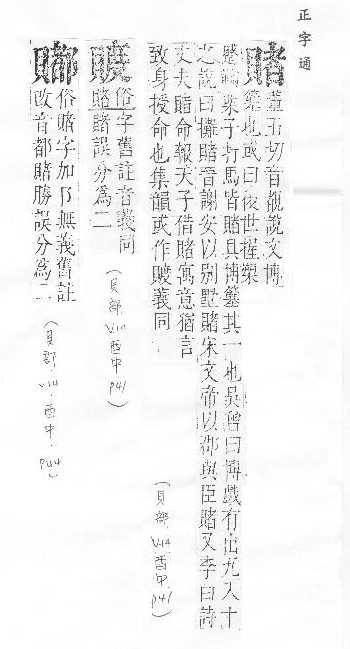 正字通
賭 董五切音覩說文博
簺也或曰後世握槊
蹙鞠 子打馬皆賭具博簺其一也吳曾曰博戲有出九入十
之說曰攤賭晉謝安以別墅賭宋文帝以郡與臣賭又李白詩
丈夫賭命報天子借賭寓意猶言
致身授命也集韻或作 義同
(貝部 V.14 酉中 P41)
俗字舊註音義同
賭誤分為二
(貝部 V.14 酉中 P41)
俗賭字加阝無義舊註
改音都賭勝誤分為二
(貝部 V.14 酉中 P44)